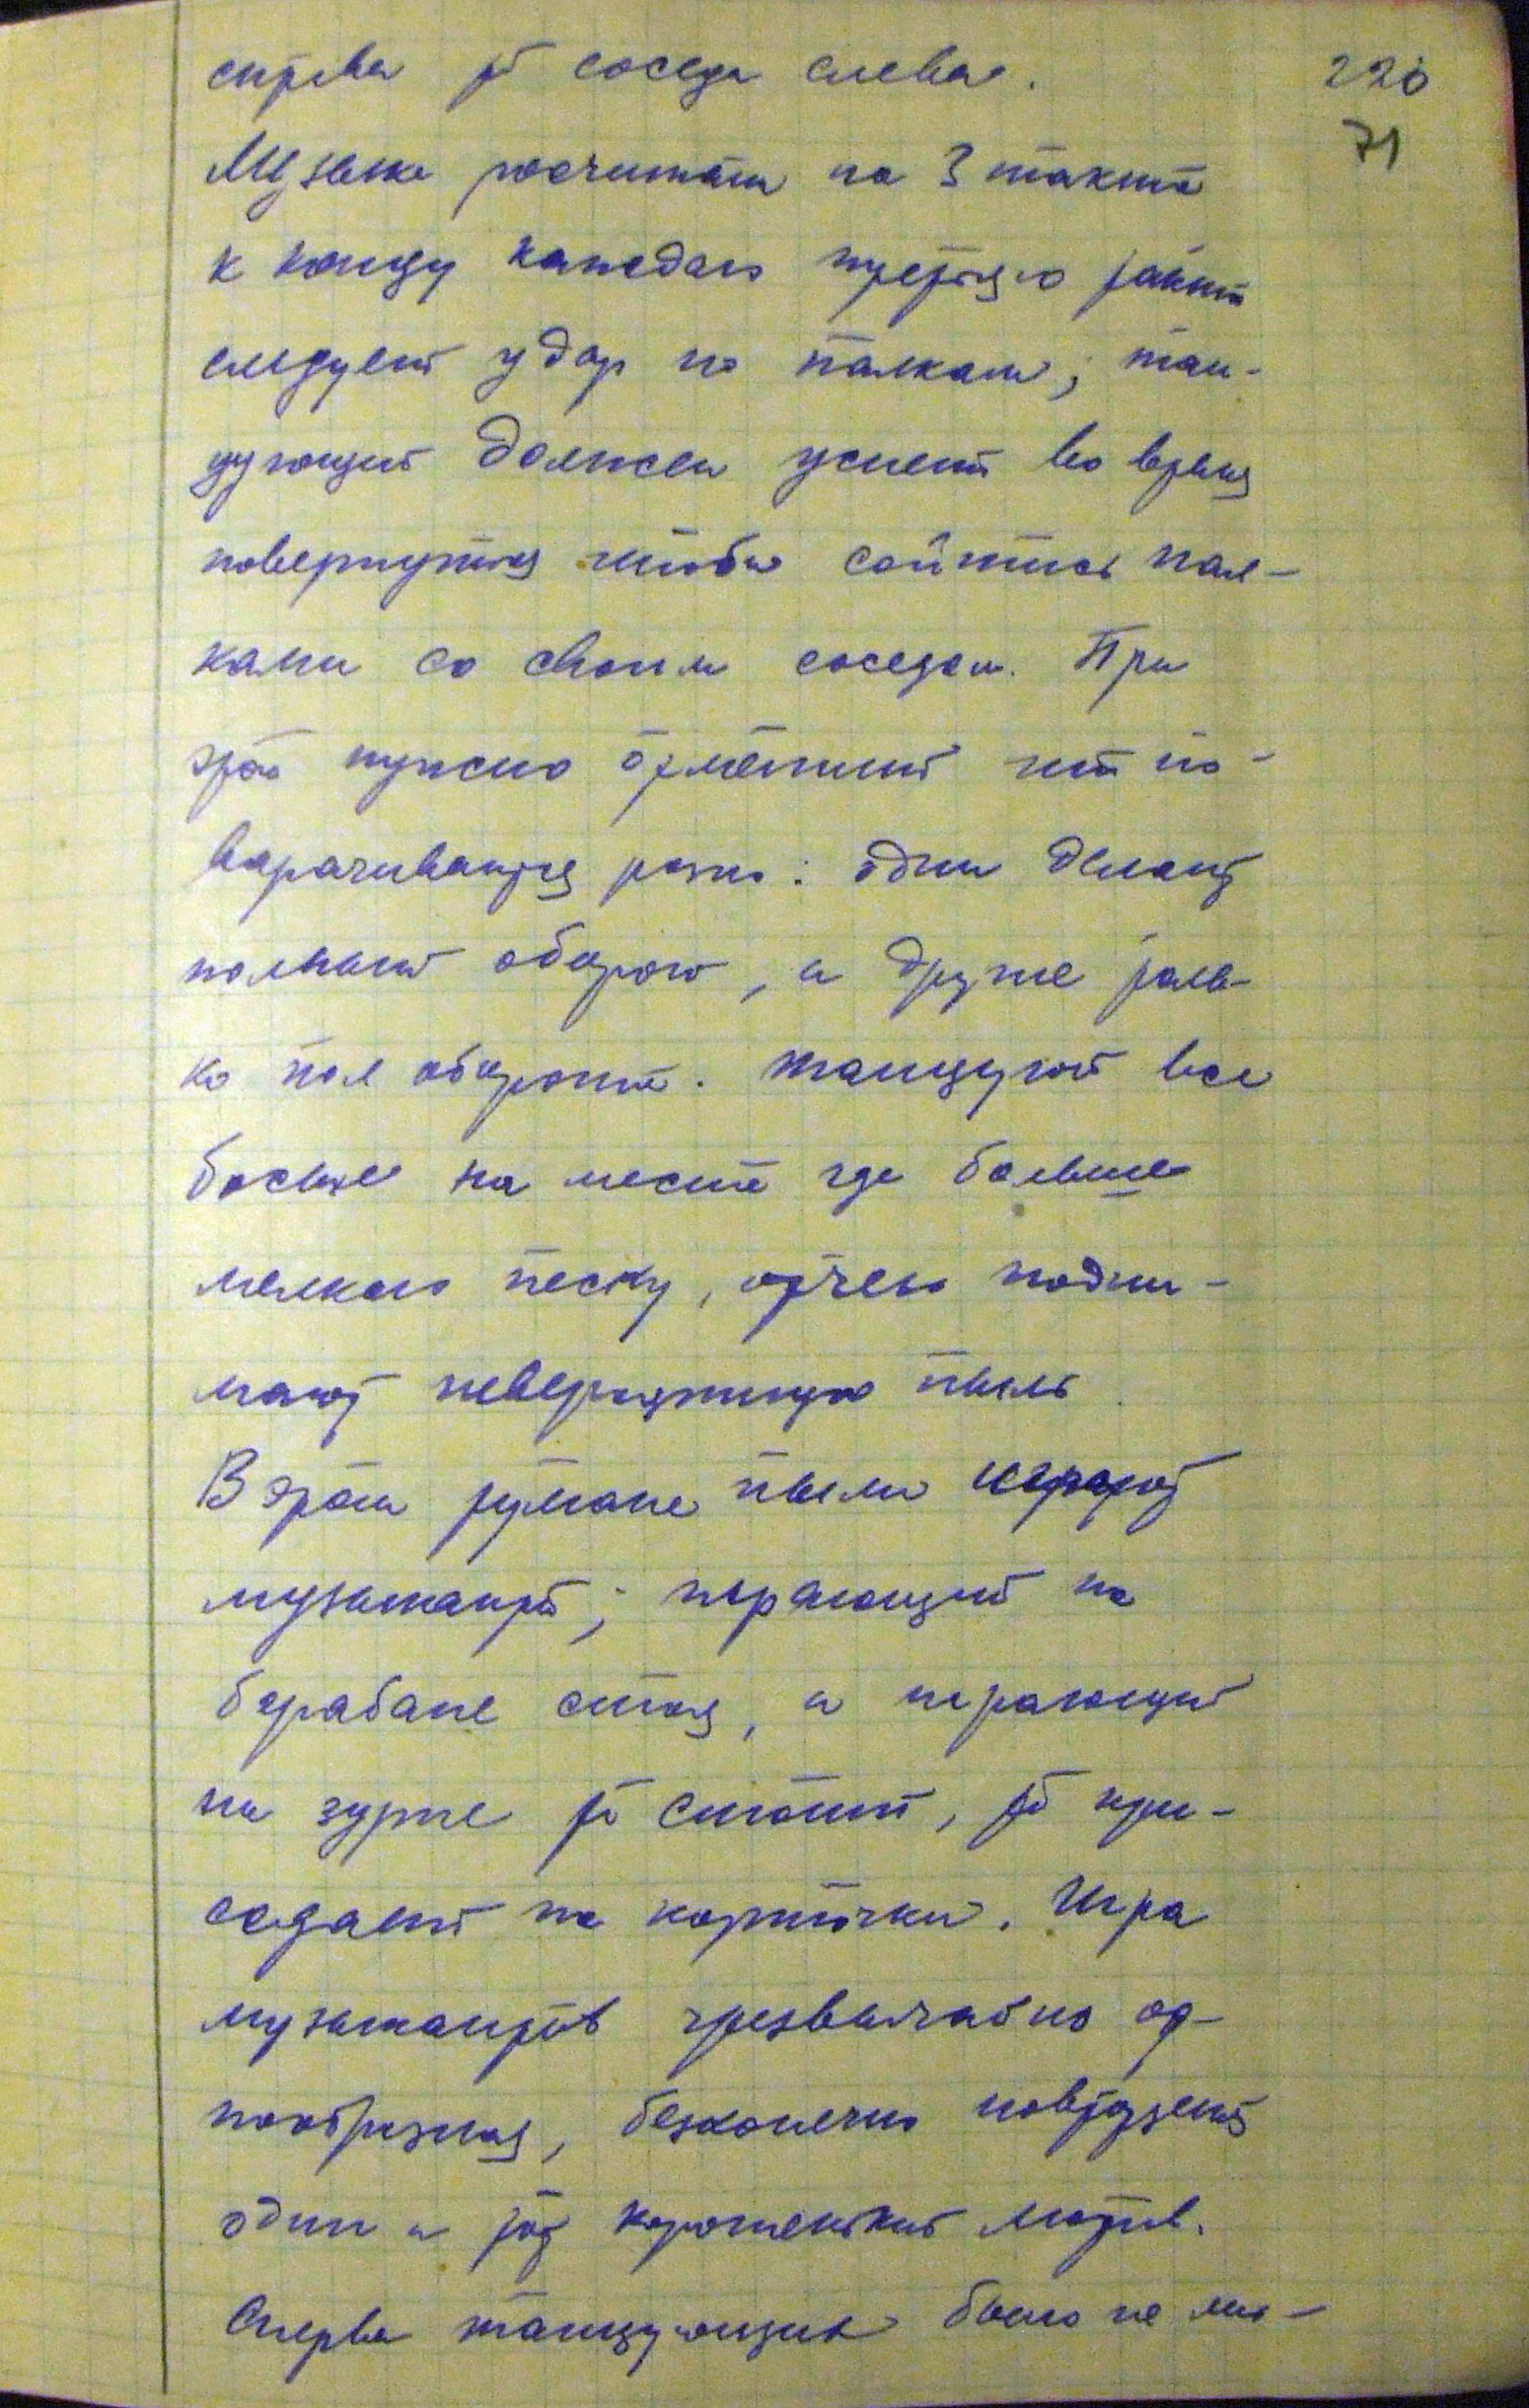 справа то соседа слева.
220
71
Музыка росчитана на 3 такта
к концу каждого третьяго такта
следует удар по палкам; тан-
цующий должен успеть во время
повернутся чтобы сойтись пал-
ками со своим соседом. При
это нужно отметить что по-
варачиваются розно: одни делают
полный оборот, а другие толь-
ко пол оборота. Танцуют все
босые на месте где больше
мелкого песку, отчего подни-
мают невероятную пыль
В этом тумане пыли играют
музыканты; играющий на
барабане стоя, а играющий
на зурне то стоит, то при-
седает на корточки. Игра
музыкантов чрезвычайно од-
нообразная, безконечно повторяет
один и тот коротенький мотив.
Сперва танцующих было не мно-